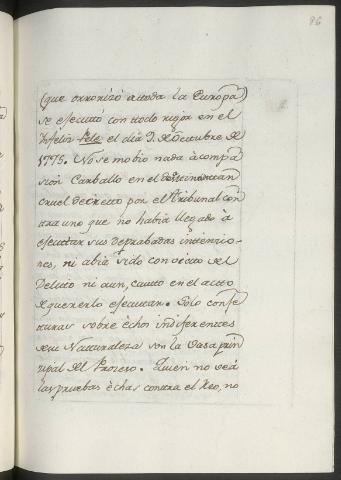 86
(que orrorizó a toda la Europa)
se efecutó con todo rigor en el
Infeliz Pele el dia 9. de Octubre de
1775. No se mobio nada à compa
sion Carballo en el dictinan tan
cruel decretto por el Tribunal con
ttra uno que no habia llegado à
efecuttar sus deprabadas intenzio-
nes, ni abia sido convicto del
Delito ni aun, cauto en el acto
de quererlo efecuttar. Solo confe
turas sobre èchos indiferentes
de su Natturaleza son la vasa prin
zipal del Prozeso. Quien no veà
las pruebas èchas conttra el Reo, no